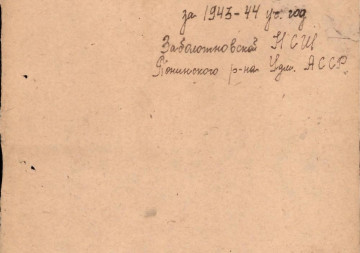 за 1943-44 уч. год
Заболотновской НСШ
Понинского р-на Удм. АССР